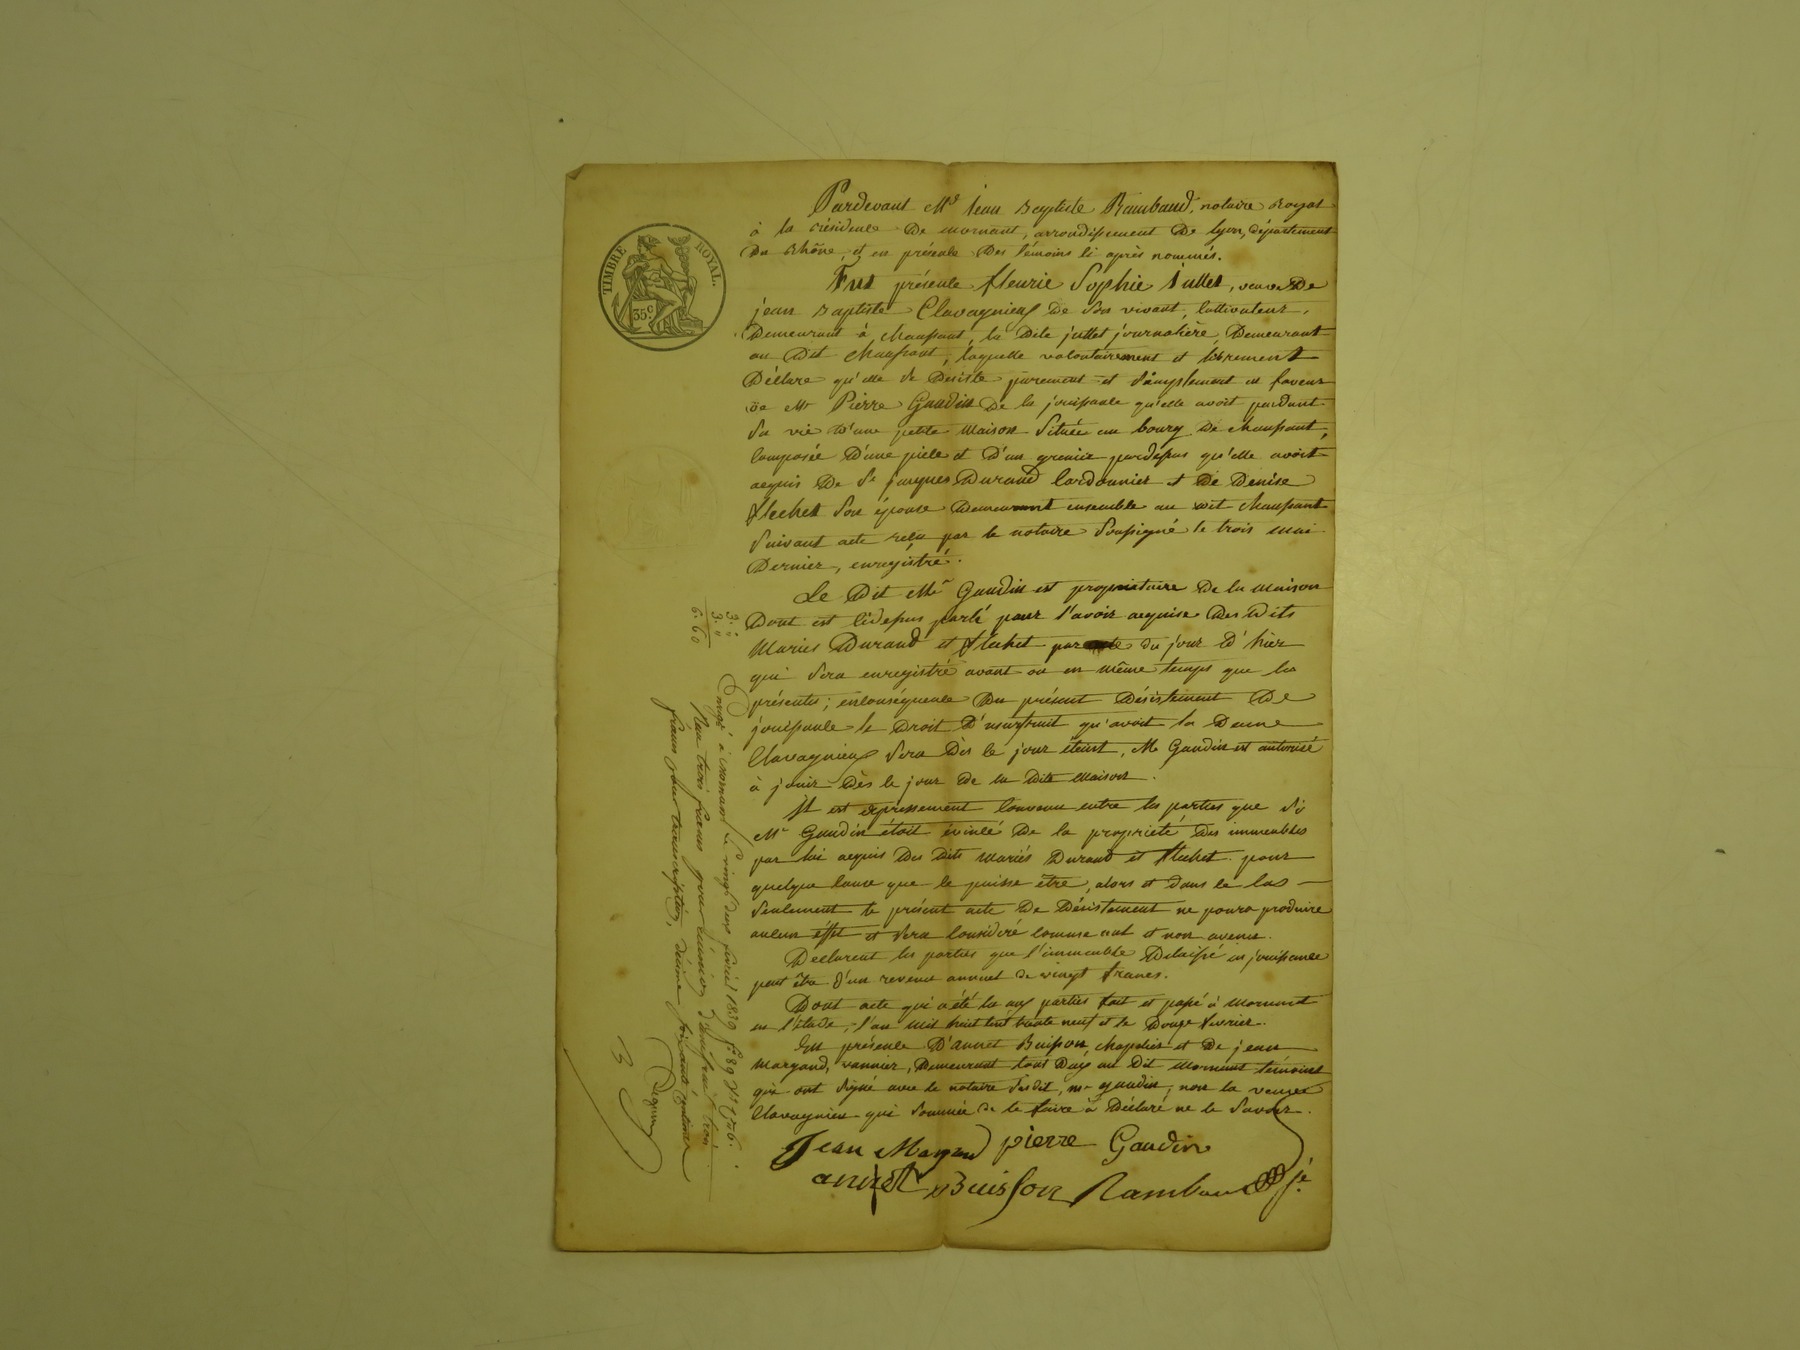 Pardevant Me Jean Baptiste Rambaud, notaire Royal
à la résidence De mornant, arrondissement De lyon, département
Du Rhône, et en présence Des témoins ci après nommés.
Fut présente fleurie Sophie Jullet, veuve De
jean Baptiste Clavagnieux De son vivant, Cultivateur,
Demeurant à Chaussant, la Dite jullet journalière, Demeurant
au Dit Chaussant, laquelle volontairement et librement
Déclare qu'elle se Desiste purement et simplement en faveur
De Mr Pierre Gaudin De la jouissance qu'elle avoit pendant
Sa vie D'une petite Maison Située au bourg De Chaussant,
Composée D'une pièce et D'un grenier pardessus qu'elle avoit
acquis De Sr jacques Durand Cordonnier et De Denise
flechet Son épouse Demeurant ensemble au Dit Chaussant
Suivant acte reçu par le notaire Soussigné le trois mai
Dernier, enregistré.
Le Dit Mr Gaudin est propriétaire De la Maison
Dont est Cidessus parlé pour l'avoir acquise Des Dits
Mariés Durand et flechet par acte du jour D'hier
qui Sera enregistré avant ou en même temps que les
présentes; enconséquence Du présent Désistement De
jouissance le Droit D'usufruit qu'avoit la Demme
Clavagnieux Sera Dès ce jour éteint, Mr Gaudin est autorisé
à jouir Dès ce jour De la Dite Maison.
Il est expressement Convenu entre les parties que Si
Mr Gaudin étoit évincé De la propriété Des immeubles
par lui acquis Des Dits Mariés Durand et flechet pour
quelque Cause que ce puisse être, alors et Dans ce Cas
Seulement le présent acte De Désistement ne poura produire
aucun éffet et Sera Considéré Comme nul et non avenu.
Declarent les parties que l'immeuble Delaissé en jouissance
peut être D'un revenu annuel De vingt francs.
Dont acte qui a été lu aux parties fait et passé à Mornant
en l'étude, l'an Mil huit Cent trente neuf et le Douze fevrier.
En présence D'annet Buisson Chapelier et De jean
Margand, vannier, Demeurant tous Deux au Dit Mornant témoins
qui ont Signé avec le notaire Susdit, mr gaudin, non la veuve
Clavagnieux qui Sommée De le faire a Déclaré ne le Savoir.
Jean Margand pierre Gaudin
annet Buisson Rambaud
TIMBRE ROYAL.
35 c
3. "
3. "
6. 60
Enregé à mornant le vingt deux fevrier 1839 fo 89 Vo
Reçu trois francs pour réunion d'usufruit trois
francs pour transcription, décime soixante centimes